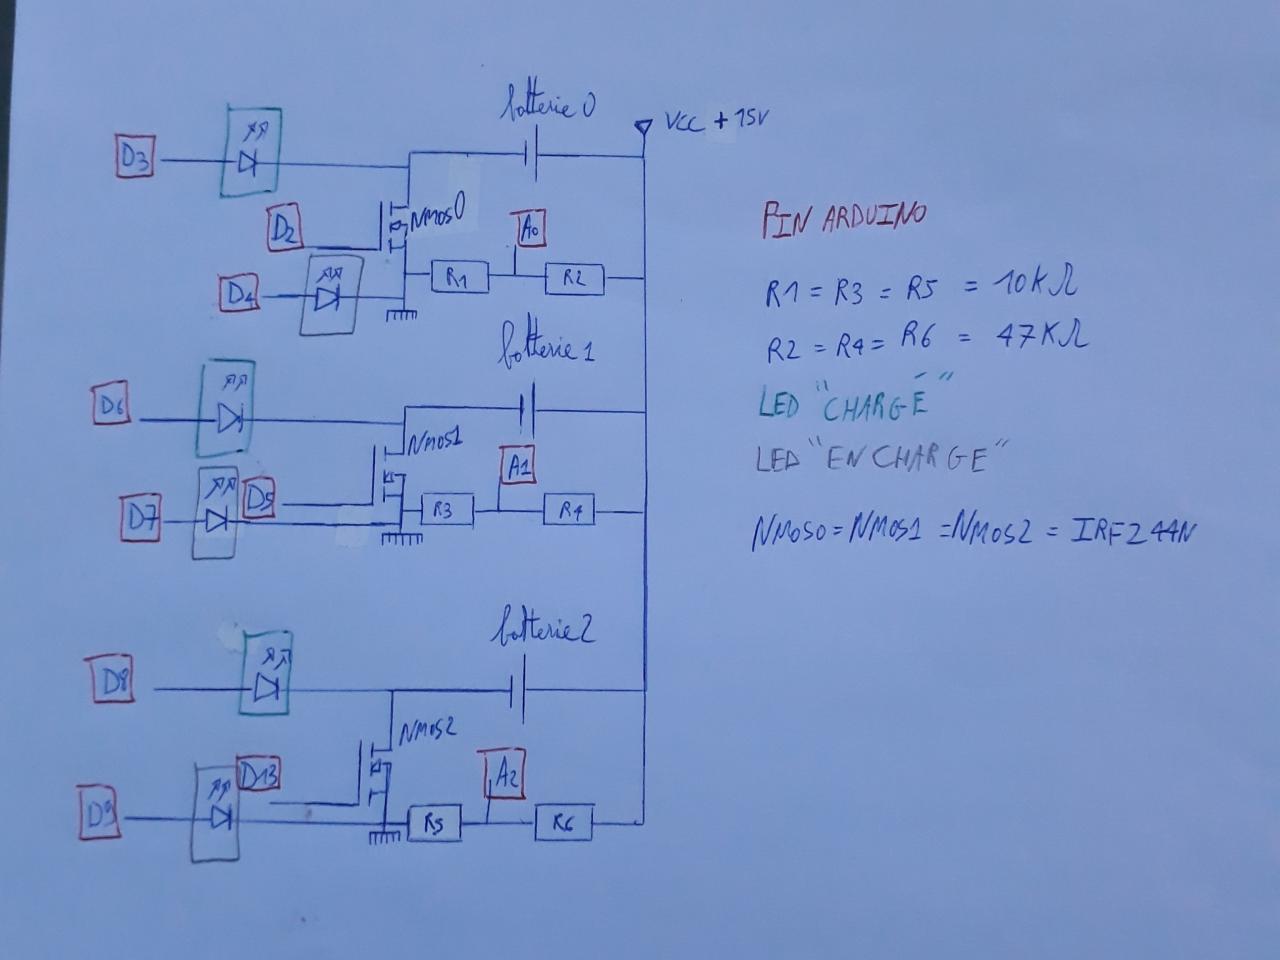 batterie 0
VCC + 15V
D3
D2
NMOS0
A0
D4
R1
R2
batterie 1
D6
NMOS1
A1
D5
D7
R3
R4
batterie 2
D8
NMOS2
D13
A2
D9
R5
R6
PIN ARDUINO
R1 = R3 = R5 = 10KΩ
R2 = R4 = R6 = 47KΩ
LED "CHARGÉ"
LED "EN CHARGE"
NMOS0 = NMOS1 = NMOS2 = IRFZ44N